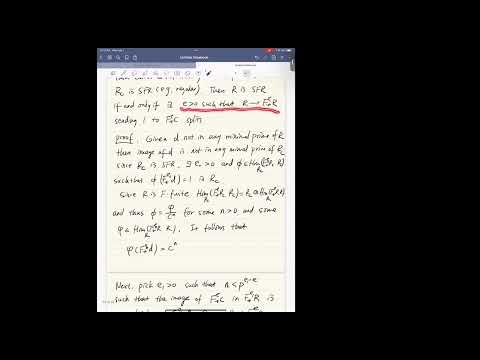 R_c is SFR (e.g., regular). Then R is SFR
if and only if ∃ e>0 such that R → F^e_*R
sending 1 to F^e_*c splits
proof: Given d not in any minimal prime of R
then image of d is not in any minimal prime of R_c
since R_c is SFR, ∃ e_0 >0 and φ∈Hom_{R_c}(F^{e_0}_*R_c, R_c)
such that φ(F^{e_0}_*d)=1 in R_c
since R is F-finite. Hom_{R_c}(F^{e_0}_*R_c, R_c)=R_c⊗Hom_R(F^{e_0}_*R, R)
and thus φ = φ/c^n for some n>0 and some
φ ∈ Hom_R(F^{e_0}_*R, R). It follows that
φ(F^{e_0}_*d) = c^n
Next, pick e_1>0 such that n<p^{e_1·e}
such that the image of F^e_*c in F^e_*R is